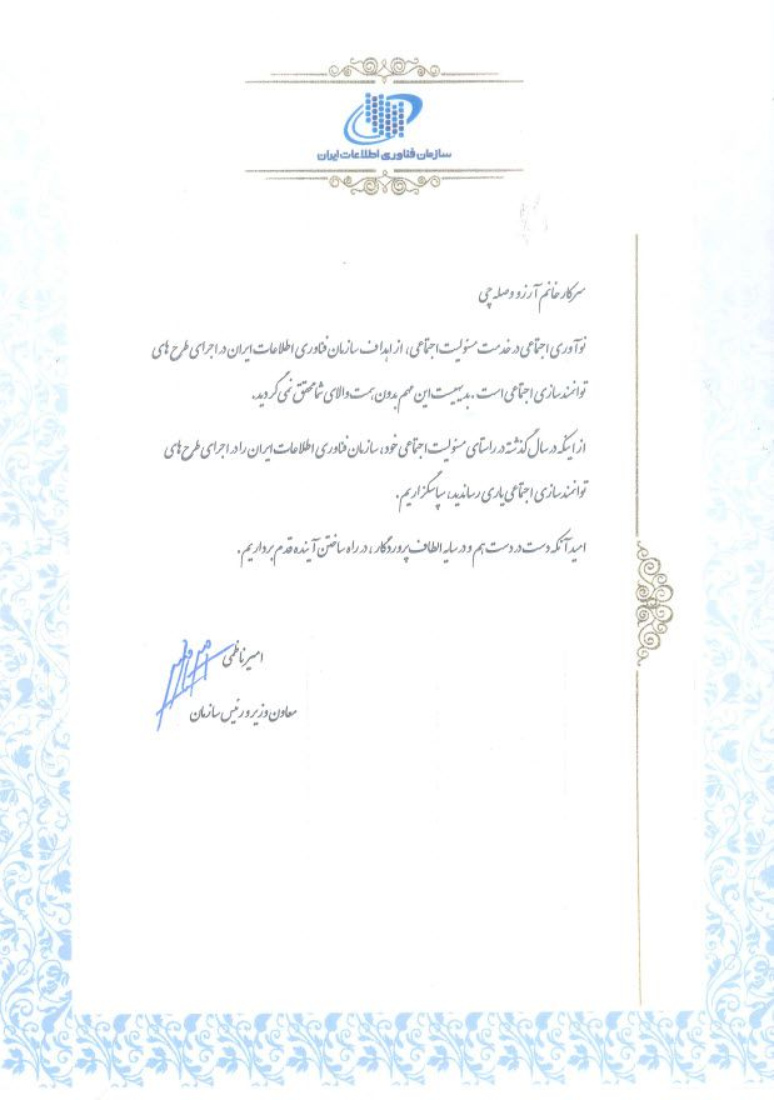 سازمان فناوری اطلاعات ایران
سرکار خانم آرزو وصله چی
نوآوری اجتماعی در خدمت مسئولیت اجتماعی، از اهداف سازمان فناوری اطلاعات ایران در اجرای طرح های
توانمندسازی اجتماعی است. بدیهیست این مهم بدون همت والای شما محقق نمی گردید.
از اینکه در سال گذشته در راستای مسئولیت اجتماعی خود، سازمان فناوری اطلاعات ایران را در اجرای طرح های
توانمندسازی اجتماعی یاری رساندید، سپاسگزاریم.
امید آنکه دست در دست هم و در سایه الطاف پروردگار، در راه ساختن آینده قدم برداریم.
امیر ناظمی
معاون وزیر و رئیس سازمان